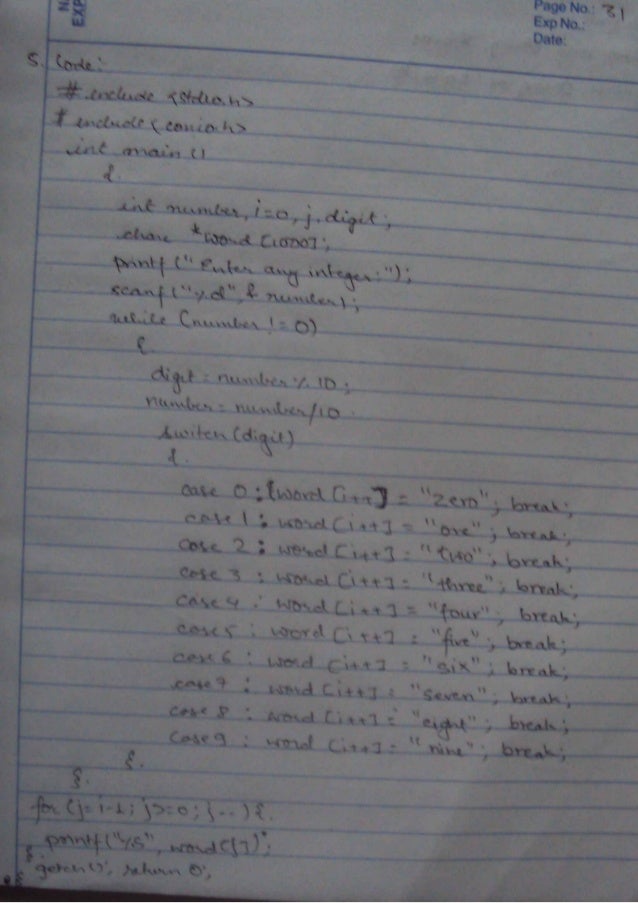 N
EXP
Page No.: 31
Exp No.:
Date:
5. Code:
# include <stdio.h>
# include <conio.h>
int main ()
{
int number, i=0, j, digit;
char *word [1000];
printf ("Enter any integer:");
scanf ("%d", & number);
while (number != 0)
{
digit = number % 10;
number = number/10.
switch (digit)
{
case 0 : [word [i++] = "zero"; break;
case 1 : word [i++] = "one"; break;
case 2 : word [i++] = "two"; break;
case 3 : word [i++] = "three"; break;
case 4 : word [i++] = "four"; break;
case 5 : word [i++] = "five"; break;
case 6 : word [i++] = "six"; break;
case 7 : word [i++] = "seven"; break;
case 8 : word [i++] = "eight"; break;
case 9 : word [i++] = "nine"; break;
}
}
for (j= i-1; j>=0; j--) {
printf ("%s", word [j]);
}
getch(); return 0;
}